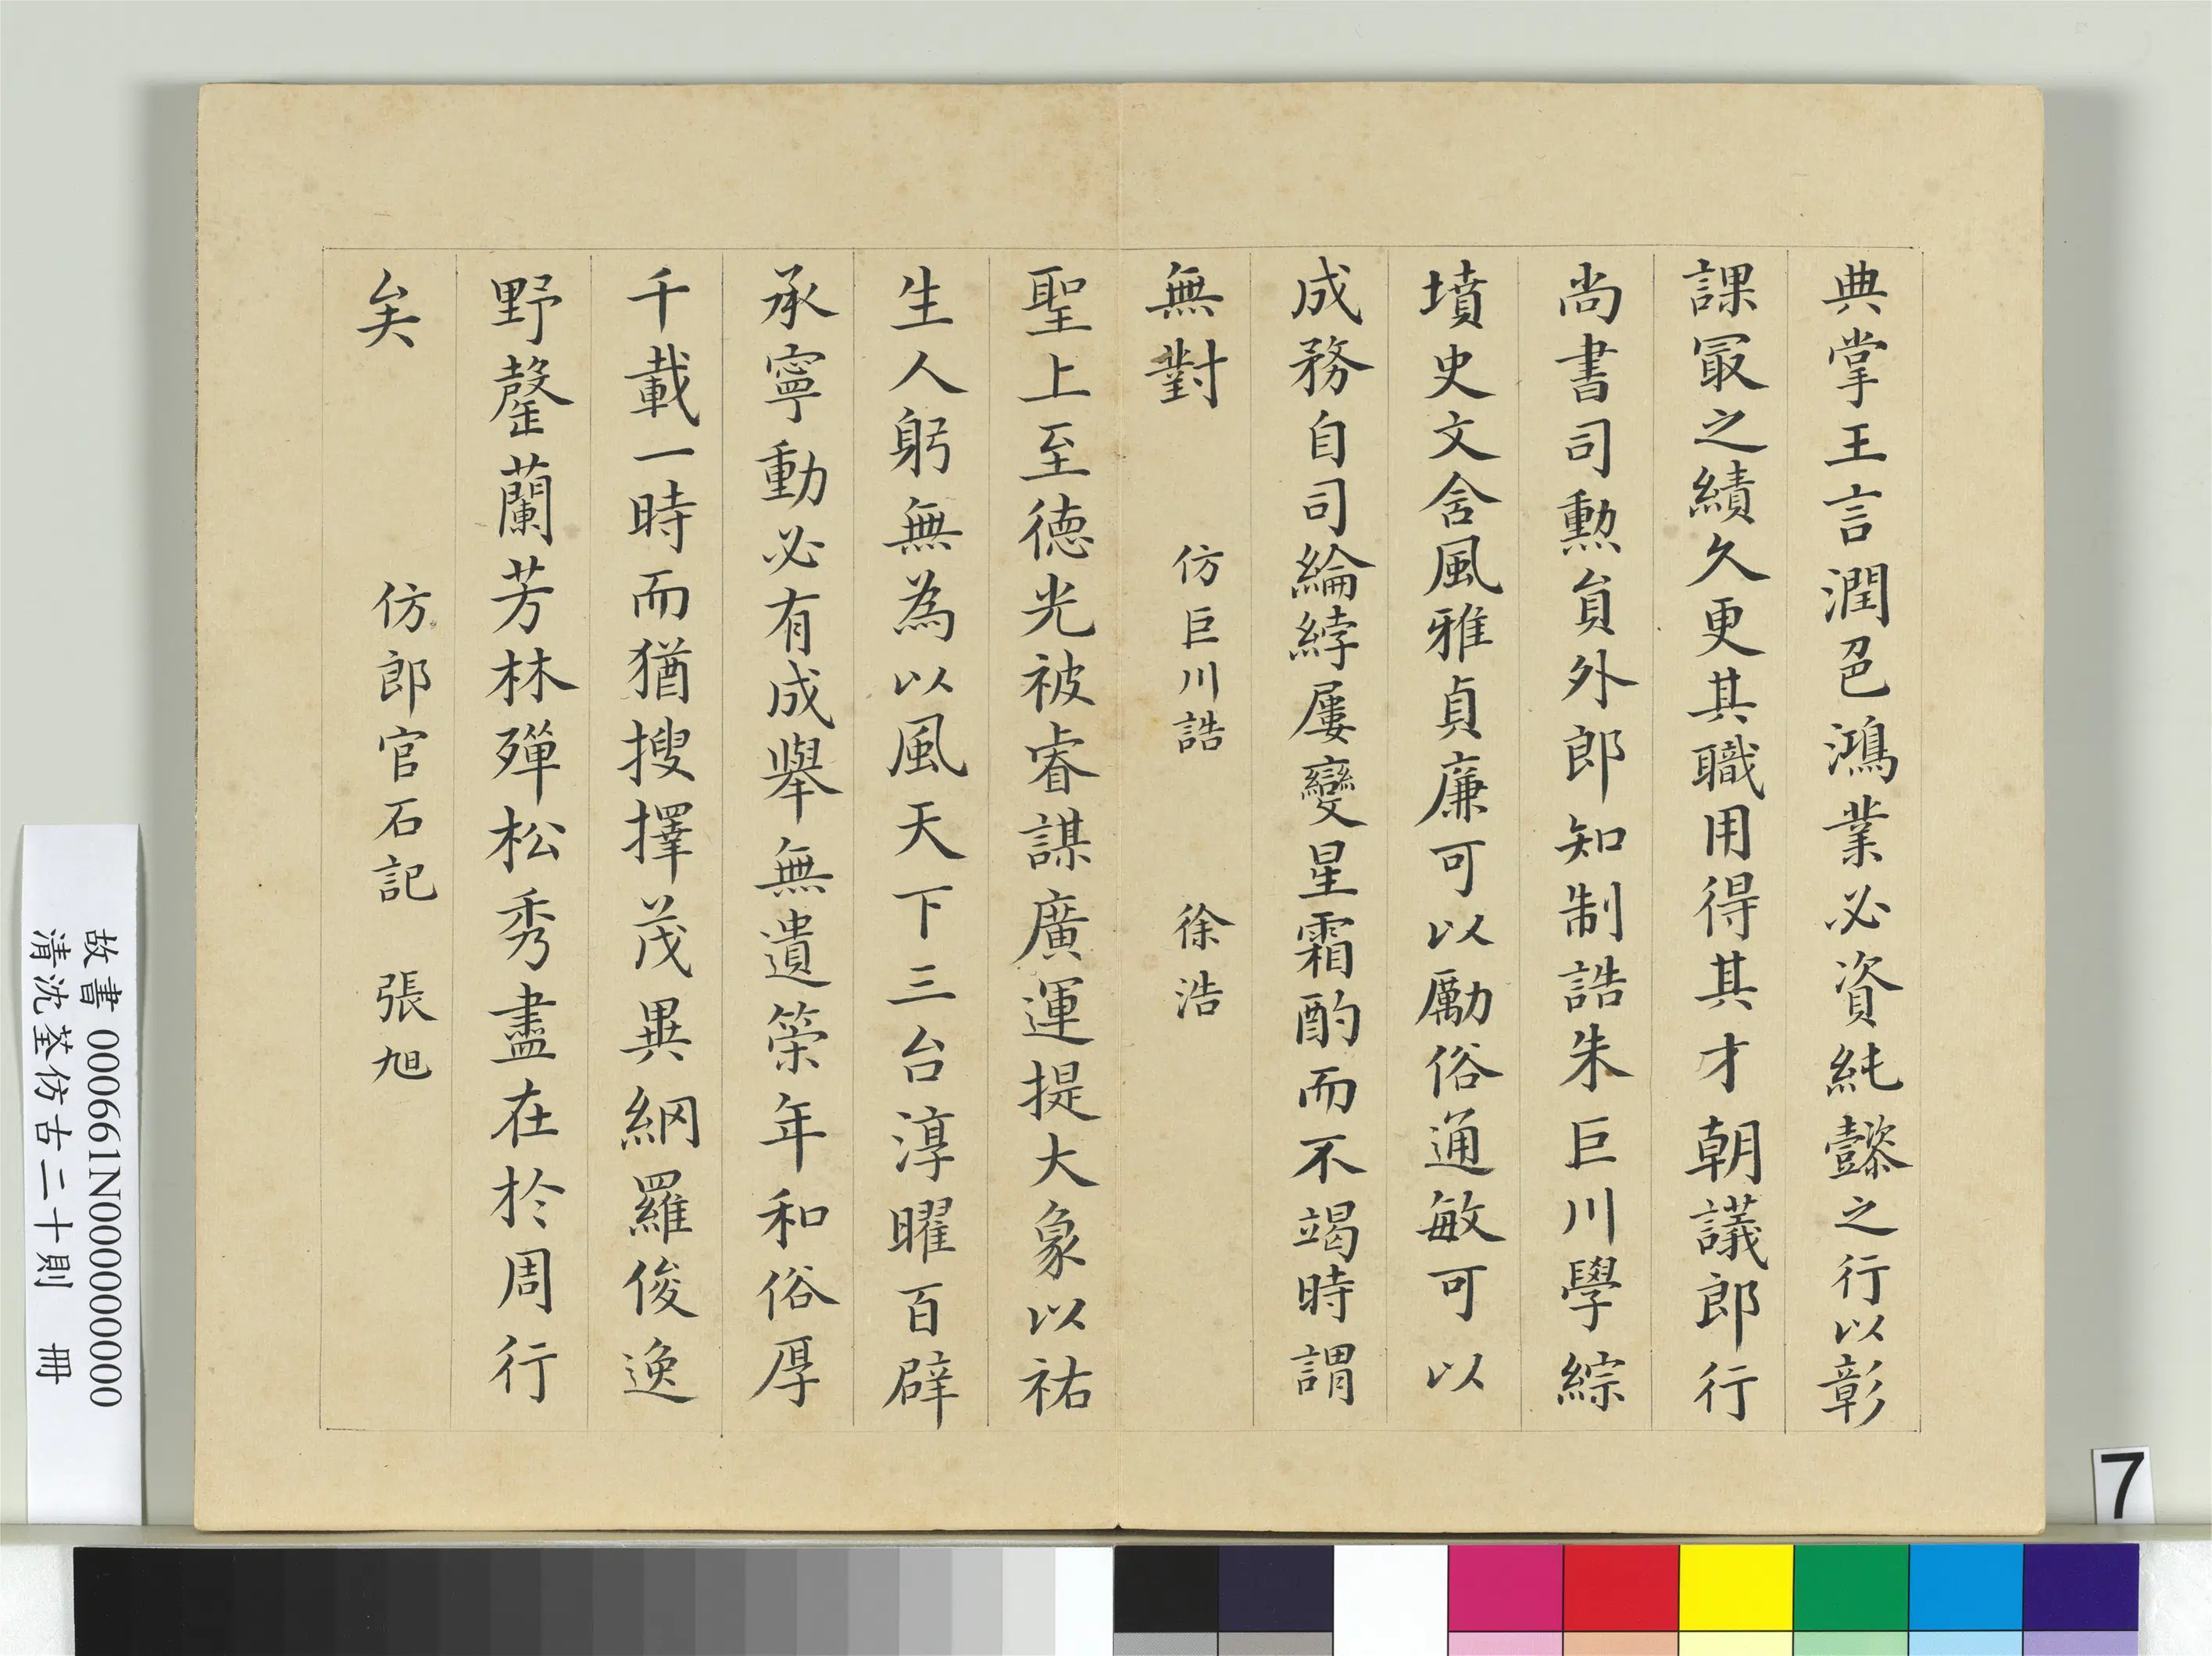 典掌王言潤色鴻業必資純懿之行以彰
課冣之績久更其職用得其才朝議郎行
尚書司勲員外郎知制誥朱巨川學綜
墳史文含風雅貞廉可以勵俗通敏可以
成務自司綸綍屢變星霜酌而不竭時謂
無對 仿巨川誥 徐浩
聖上至德光被睿謀廣運提大象以祐
生人躬無為以風天下三台淳曜百辟
承寧動必有成舉無遺筞年和俗厚
千載一時而猶搜擇茂異網羅俊逸
野罄蘭芳林殫松秀盡在於周行
矣 仿郎官石記 張旭
故書000661N000000000
清沈荃仿古二十則 冊
7